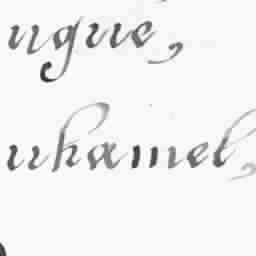 ugue,
uhamel,